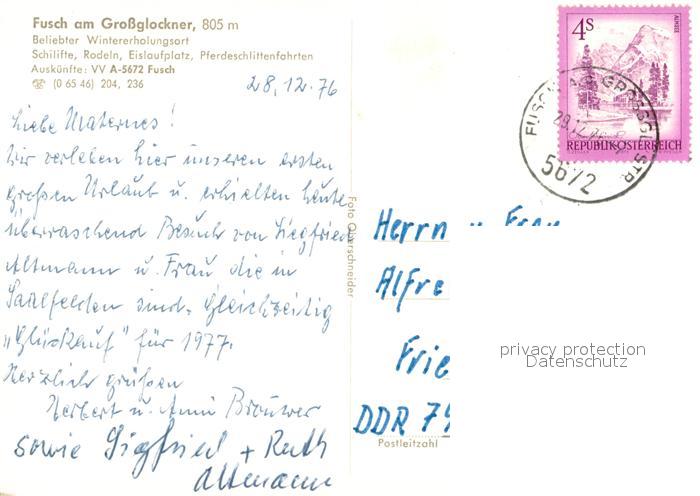 Fusch am Großglockner, 805 m
Beliebter Wintererholungsort
Schilifte, Rodeln, Eislaufplatz, Pferdeschlittenfahrten
Auskünfte: VV A-5672 Fusch
☎ (0 65 46) 204, 236
28.12.76
Liebe Maternes!
Wir verleben hier unseren ersten
großen Urlaub u. erhielten heute
überraschend Besuch von Siegfried
Altmann u. Frau die in
Saalfelden sind. Gleichzeitig
"Glückauf" für 1977.
Herzlich grüßen
Herbert u. Anni Brouwer
sowie Sigfried + Ruth
Altmann
Foto Querschneider
4S
ALMSEE
REPUBLIK ÖSTERREICH
FUSCH A.D. GROSSGL.STR.
5672
Herrn u. Frau
Alfre
Frie
DDR 79
Postleitzahl
privacy protection
Datenschutz